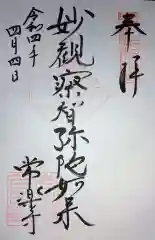 奉拝
妙観察智弥陀如来
常楽寺
令和四年
四月四日